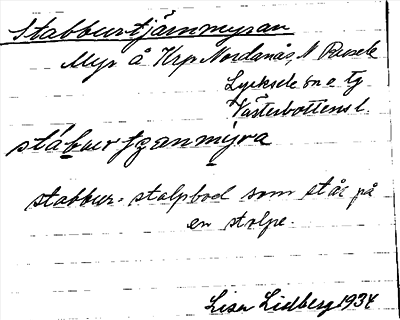 Stabburtjärnmyran
Myr å Krp Nordanås, N Rusele
Lycksele sn o tg
Västerbottens l.
stabbur
stabbur = stolpbod som står på
en stolpe.
Lisa Lidberg 1934